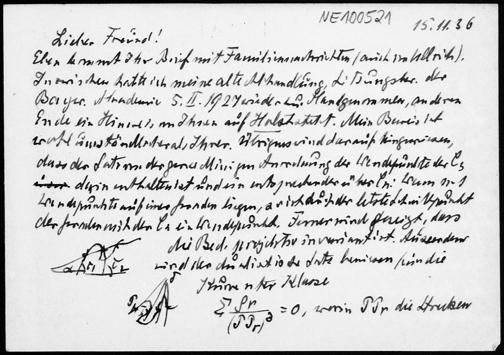 NE100521
15.11.36
Lieber Freund!
Eben kommt Ihr Brief mit Familiennachrichten (auch von Ullrich).
Inzwischen hatte ich meine alte Abhandlung, Sitzungsber. der
Bayer. Akademie 5. II. 1927 wieder zur Hand genommen, an deren
Ende ein Hinweis von Ihnen auf steht. Mein Beweis ist
wohl umständlicher als Ihrer. Übrigens wird darauf hingewiesen,
dass der Satz von der Anordnung der Wendepunkte der C₃
darin enthalten ist und ein entsprechender über Cₙ. Wenn n-1
Wendepunkte auf einer Geraden liegen, so ist auch der letzte Schnittpunkt
der Geraden mit der Cₙ ein Wendepunkt. Ferner wird gezeigt, dass
die Bed. projektiv invariant ist. Ausserdem
wird der dualistische Satz bewiesen für die
Kurve nter Klasse
Σ ρr/(PPr)³ = 0, worin PPr die Strecken